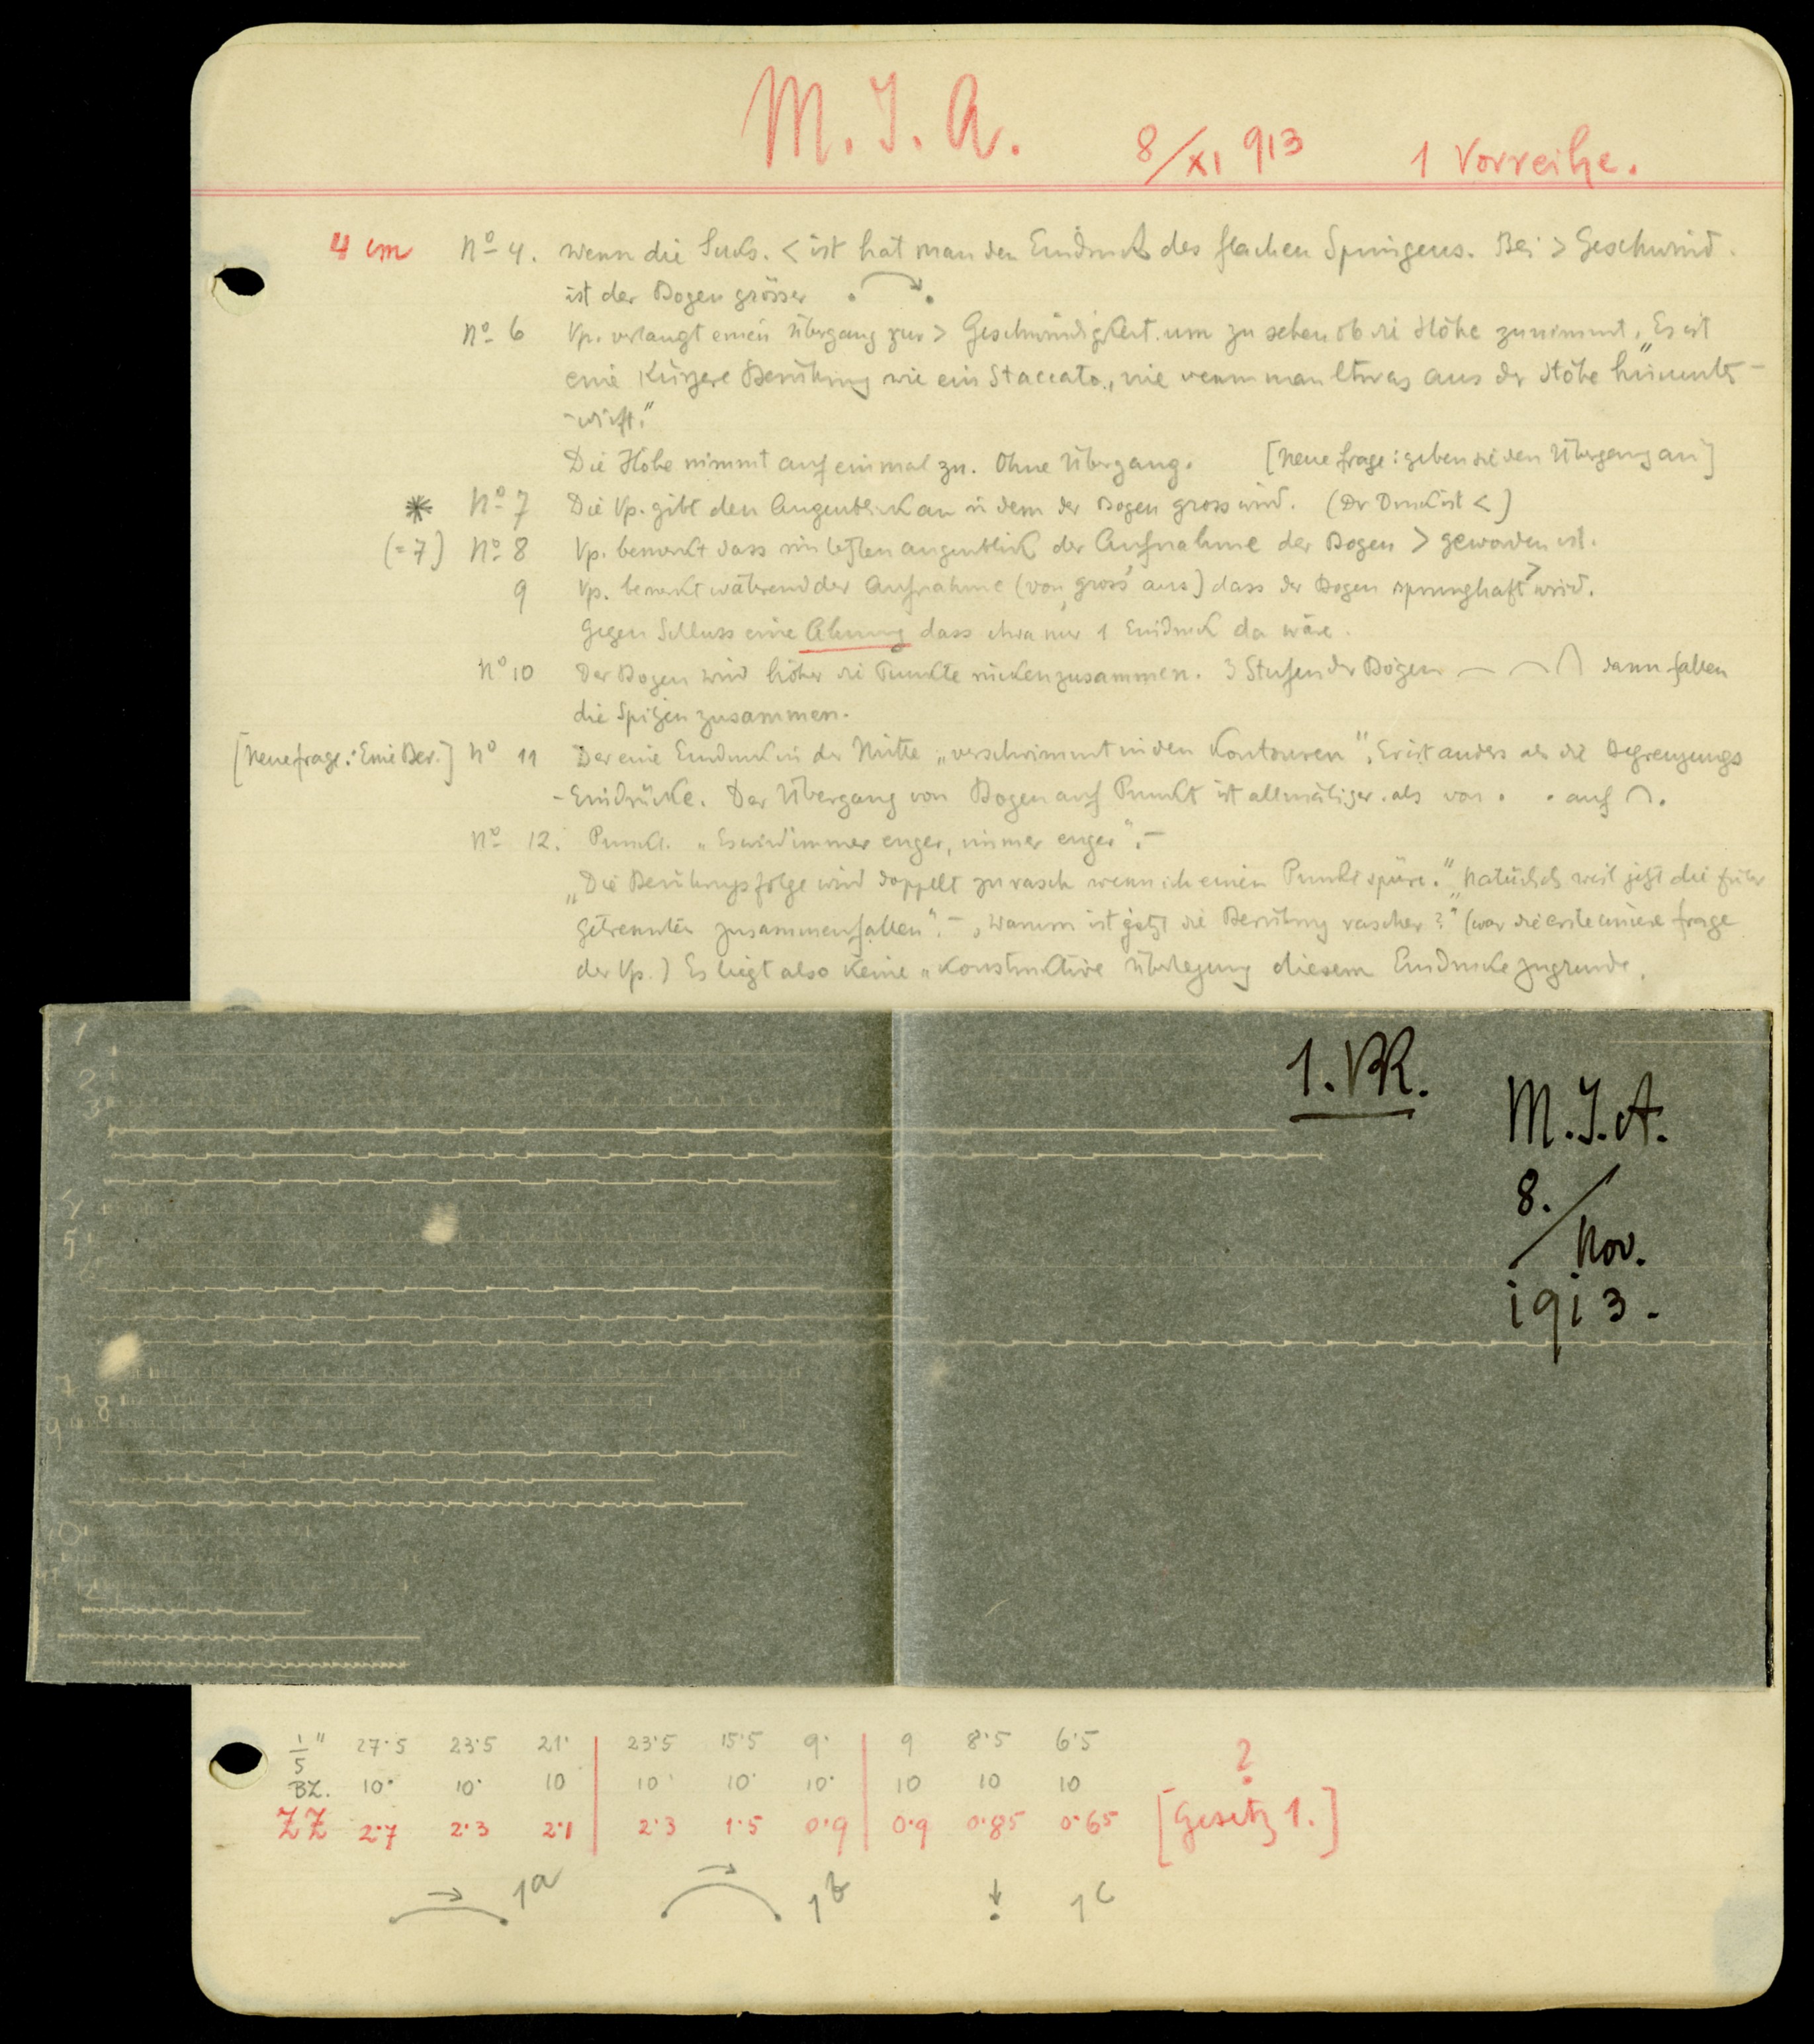 M. J. A. 8/XI 913 1 Vorreihe.
4 cm Nº 4. Wenn die Suks. < ist hat man den Eindruck des flachen Springens. Bei > Geschwind.
ist der Bogen grösser
Nº 6 Vp. verlangt einen Übergang zur > Geschwindigkeit um zu sehen ob die Höhe zunimmt. „Es ist
eine kürzere Berührung wie ein Staccato, wie wenn man etwas aus der Höhe hinunter-
-wirft."
Die Höhe nimmt auf einmal zu. Ohne Übergang. [Neue Frage: geben sie den Übergang an]
* Nº 7 Die Vp. gibt den Augenblick an in dem der Bogen gross wird. (Der Druck ist <)
(=7) Nº 8 Vp. bemerkt dass im letzten Augenblick der Aufnahme der Bogen > geworden ist.
9 Vp. bemerkt während der Aufnahme (von „gross" aus) dass der Bogen sprunghaft > wird.
Gegen Schluss eine Ahnung dass etwa nur 1 Eindruck da wäre.
Nº 10 Der Bogen wird höher die Punkte rücken zusammen. 3 Stufen der Bögen dann fallen
die Spitzen zusammen.
[Neue Frage: Eine Ber.] Nº 11 Der eine Eindruck in der Mitte „verschwimmt in den Konturen". Er ist anders als die Begrenzungs
-Eindrücke. Der Übergang von Bogen auf Punkt ist allmäliger als von . . auf ⌒.
Nº 12. Punkt. „Es wird immer enger, immer enger". –
„Die Berührungsfolge wird doppelt zu rasch wenn ich einen Punkt spüre." „Natürlich weil jetzt die früher
getrennten zusammenfallen". – „Warum ist jetzt die Berührung rascher?" (war die erste Frage
der Vp.) Es liegt also keine „Konstruktive Überlegung diesem Eindrucke zugrunde.
1
2
3
1. VR.
M. J. A.
8./Nov.
1913.
5
6
7
8
9
10
1/5" 27·5 23·5 21· 23·5 15·5 9· 9 8·5 6·5
BZ. 10· 10· 10 10· 10· 10· 10 10 10
ZZ 2·7 2·3 2·1 2·3 1·5 0·9 0·9 0·85 0·65 [Gesetz 1.] ?
1a 1b 1c